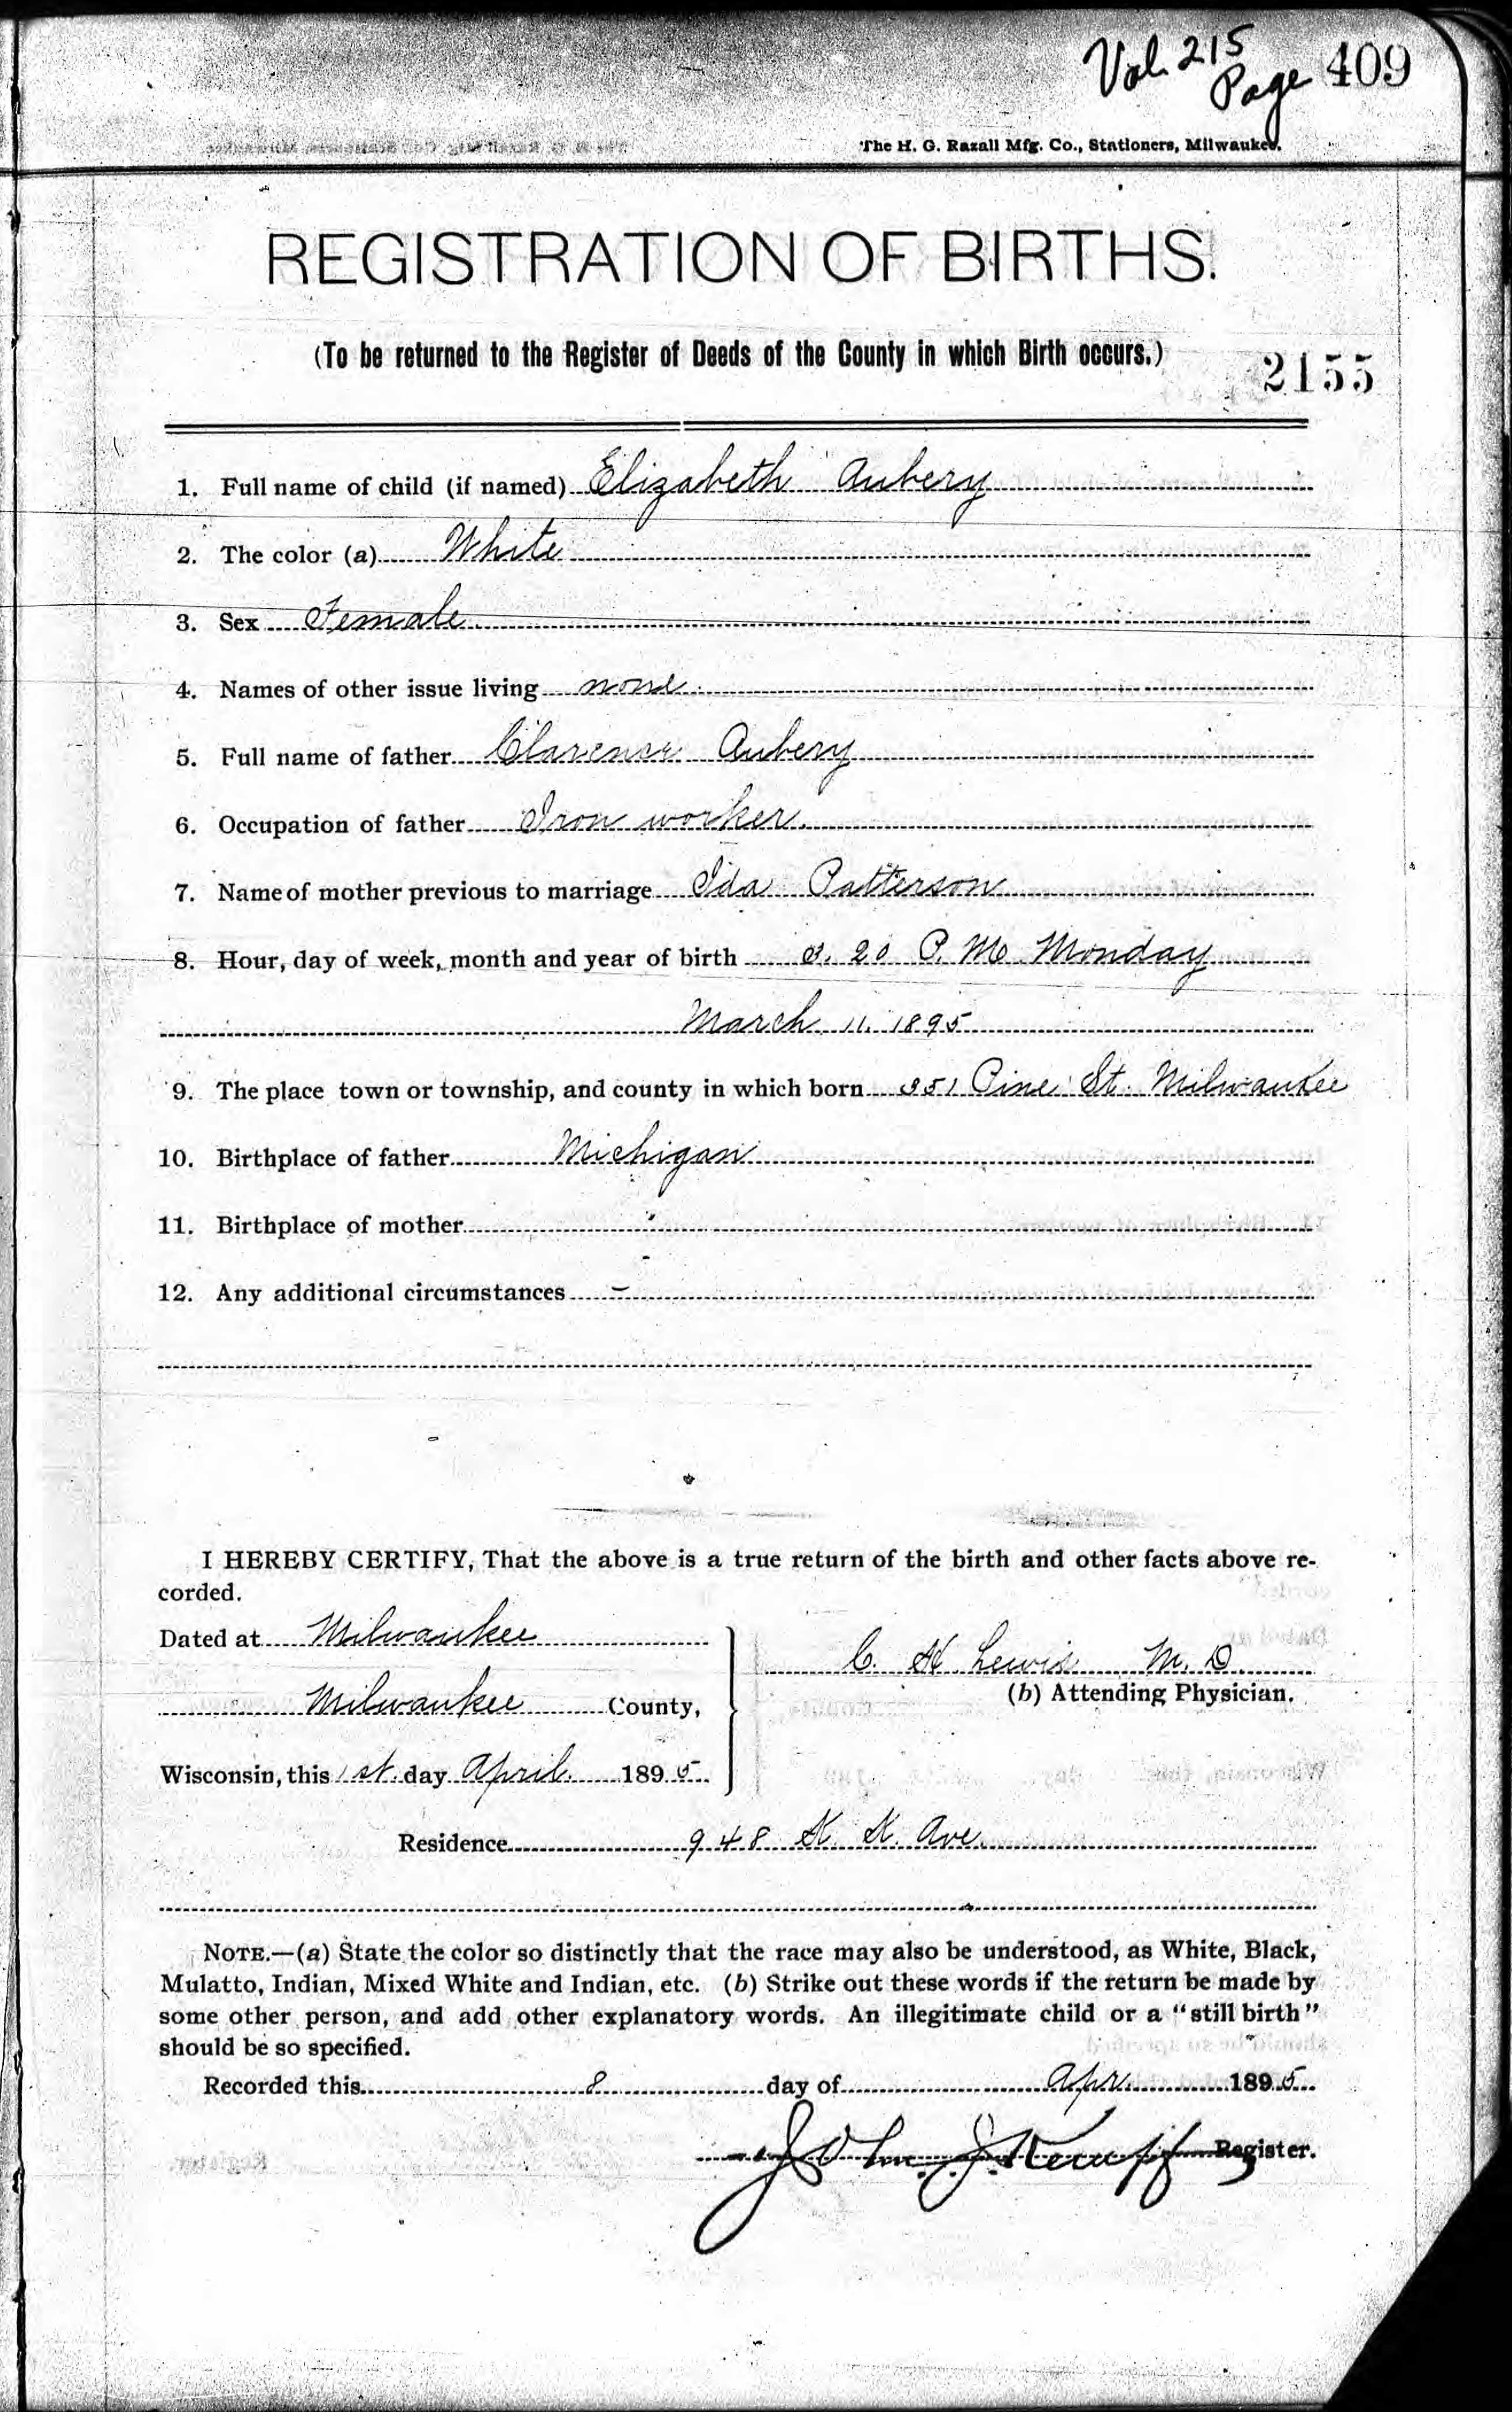 Vol. 215
Page 409
The H. G. Razall Mfg. Co., Stationers, Milwaukee.
REGISTRATION OF BIRTHS.
(To be returned to the Register of Deeds of the County in which Birth occurs.)
2155
1. Full name of child (if named) Elizabeth Aubery
2. The color (a) White
3. Sex Female
4. Names of other issue living none
5. Full name of father Clarence Aubery
6. Occupation of father Iron worker
7. Name of mother previous to marriage Ida Patterson
8. Hour, day of week, month and year of birth 20 P. M. Monday
March 11. 1895
9. The place town or township, and county in which born Pine St. Milwaukee
10. Birthplace of father Michigan
11. Birthplace of mother
12. Any additional circumstances –
I HEREBY CERTIFY, That the above is a true return of the birth and other facts above re-
corded.
Dated at Milwaukee
C. H Lewis M. D.
(b) Attending Physician.
Milwaukee County,
Wisconsin, this 1st. day April 1895
Residence 948 K. K. Ave.
NOTE.—(a) State the color so distinctly that the race may also be understood, as White, Black,
Mulatto, Indian, Mixed White and Indian, etc. (b) Strike out these words if the return be made by
some other person, and add other explanatory words. An illegitimate child or a "still birth"
should be so specified.
Recorded this 8 day of Apr. 1895
John J. Register.